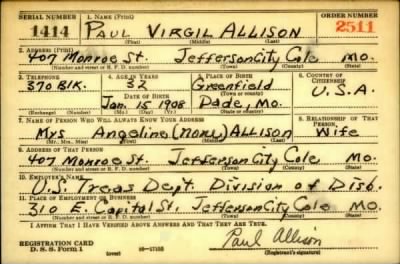 SERIAL NUMBER 1. NAME (Print) ORDER NUMBER
1414 PAUL VIRGIL ALLISON 2511
(First) (Middle) (Last)
2. ADDRESS (Print)
407 Monroe St. Jefferson City Cole Mo.
(Number and street or R. F. D. number) (Town) (County) (State)
3. TELEPHONE 4. AGE IN YEARS 5. PLACE OF BIRTH 6. COUNTRY OF CITIZENSHIP
370 Blk. 32 Greenfield
DATE OF BIRTH (Town or county) U.S.A.
Jan. 15 1908 Dade, Mo.
(Exchange) (Number) (Mo.) (Day) (Yr.) (State or country)
7. NAME OF PERSON WHO WILL ALWAYS KNOW YOUR ADDRESS 8. RELATIONSHIP OF THAT PERSON
Mrs Angeline ALLISON Wife
(Mr., Mrs., Miss) (First) (Middle) (Last)
9. ADDRESS OF THAT PERSON
407 Monroe St. Jefferson City Cole Mo.
(Number and street or R. F. D. number) (Town) (County) (State)
10. EMPLOYER'S NAME
U.S. Treas Dept. Division of Disb.
11. PLACE OF EMPLOYMENT OR BUSINESS
310 E. Capital St. Jefferson City Cole Mo.
(Number and street or R. F. D. number) (Town) (County) (State)
I AFFIRM THAT I HAVE VERIFIED ABOVE ANSWERS AND THAT THEY ARE TRUE.
Paul Allison
REGISTRATION CARD
D. S. S. Form 1 (over) (Registrant's signature)